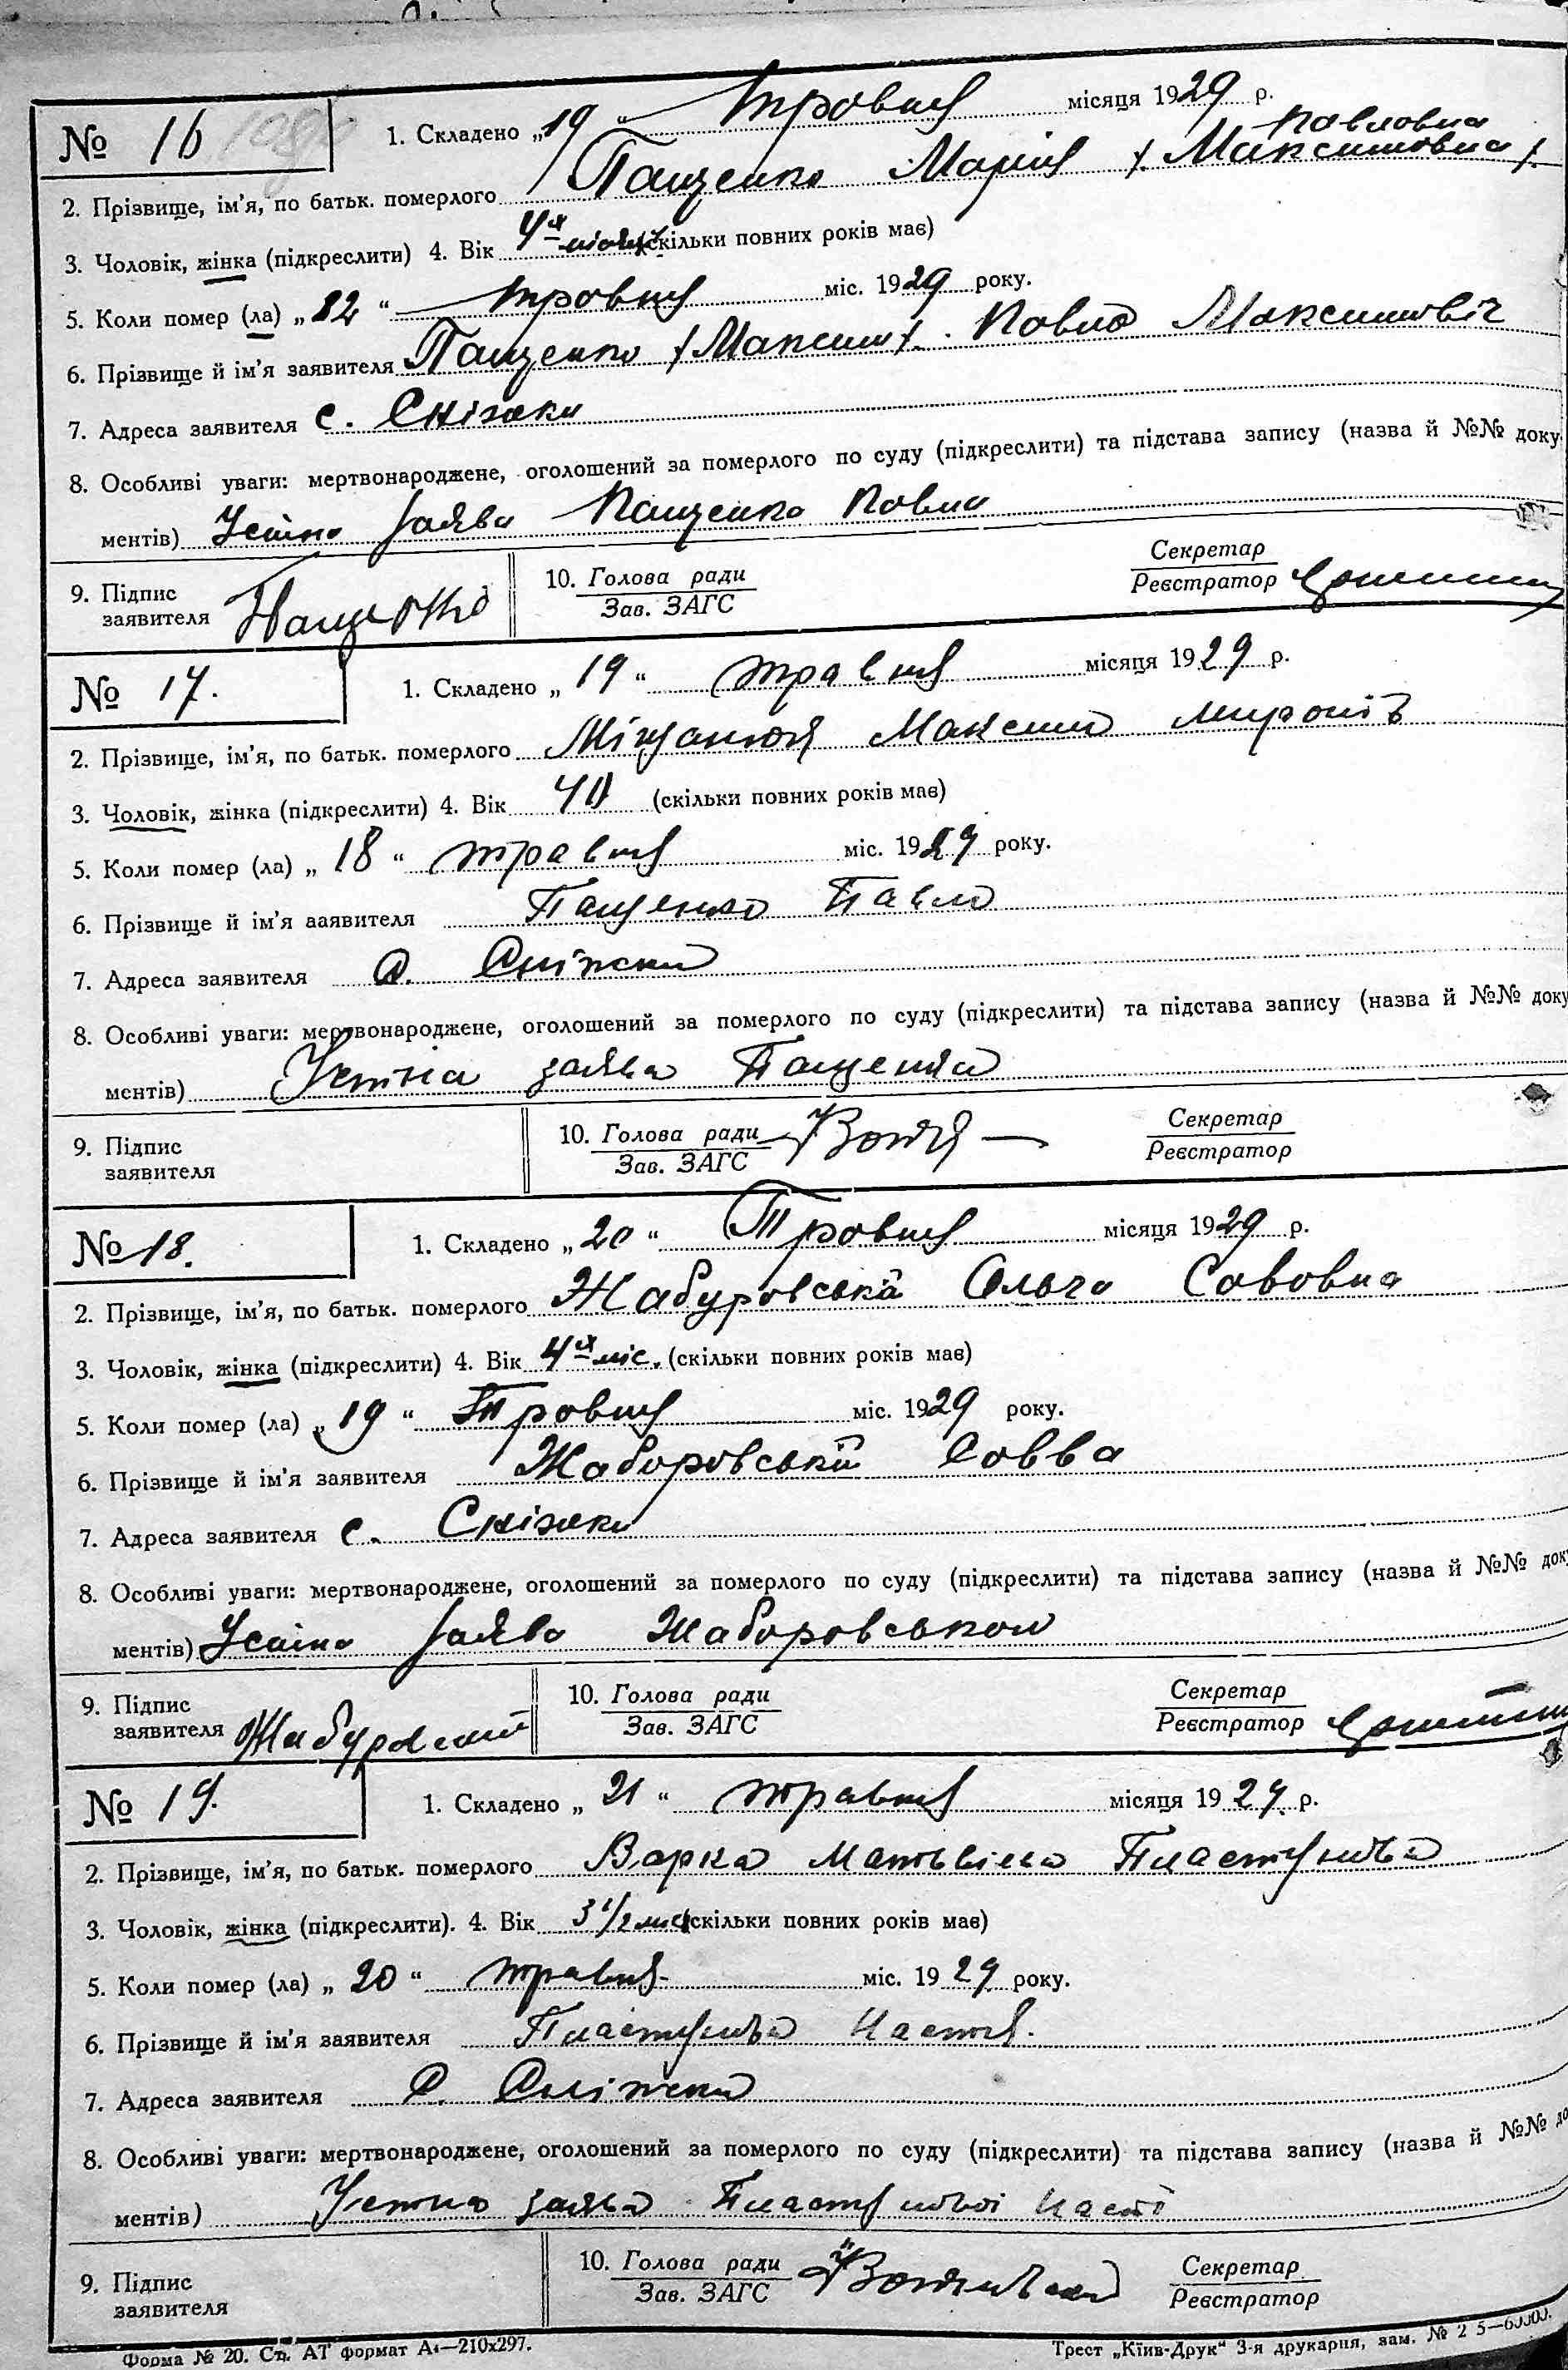 № 16 1. Складено „19“ травня місяця 1929 р.
Павловна
2. Прізвище, ім'я, по батьк. померлого Пащенко Марія /Максимовна/.
3. Чоловік, жінка (підкреслити) 4. Вік 4х місяц. (скільки повних років має)
5. Коли помер (ла) „12“ травня міс. 1929 року.
6. Прізвище й ім'я заявителя Пащенко /Максим/. Павло Максимовіч
7. Адреса заявителя с. Сніжки
8. Особливі уваги: мертвонароджене, оголошений за померлого по суду (підкреслити) та підстава запису (назва й №№ доку
ментів) Усіна заява Пащенка Павла
9. Підпис заявителя Пащенко 10. Голова ради Зав. ЗАГС Секретар Реєстратор
№ 17. 1. Складено „19“ травня місяця 1929 р.
2. Прізвище, ім'я, по батьк. померлого Міщанюк Максим Миронів
3. Чоловік, жінка (підкреслити) 4. Вік 40 (скільки повних років має)
5. Коли помер (ла) „18“ травня міс. 1929 року.
6. Прізвище й ім'яааявителя Пащенко Павло
7. Адреса заявителя с. Сніжки
8. Особливі уваги: мертвонароджене, оголошений за померлого по суду (підкреслити) та підстава запису (назва й №№ доку
ментів) Устна заява Пащенка
9. Підпис заявителя 10. Голова ради Зав. ЗАГС Секретар Реєстратор
№ 18. 1. Складено „20“ Травня місяця 1929 р.
2. Прізвище, ім'я, по батьк. померлого Жабуровська Ольга Сововна
3. Чоловік, жінка (підкреслити) 4. Вік 4х міс. (скільки повних років має)
5. Коли помер (ла) „19“ Травня міс. 1929 року.
6. Прізвище й ім'я заявителя Жаборовській Совва
7. Адреса заявителя с. Сніжки
8. Особливі уваги: мертвонароджене, оголошений за померлого по суду (підкреслити) та підстава запису (назва й №№ доку
ментів) Усіна заява Жаборовськом
9. Підпис заявителя Жабуровский 10. Голова ради Зав. ЗАГС Секретар Реєстратор
№ 19. 1. Складено „21“ травня місяця 1929. р.
2. Прізвище, ім'я, по батьк. померлого Варка Матвіева Пластунова
3. Чоловік, жінка (підкреслити). 4. Вік 3 1/2 міс (скільки повних років має)
5. Коли помер (ла) „20“ травня міс. 1929 року.
6. Прізвище й ім'я заявителя Пластунова Настя.
7. Адреса заявителя с. Сніжки
8. Особливі уваги: мертвонароджене, оголошений за померлого по суду (підкреслити) та підстава запису (назва й №№ до
ментів) Устна заява Пластунової Насті
9. Підпис заявителя 10. Голова ради Зав. ЗАГС Секретар Реєстратор
Форма № 20. Ст. АТ формат А4—210х297. Трест „Київ-Друк“ 3-я друкарня, зам. №